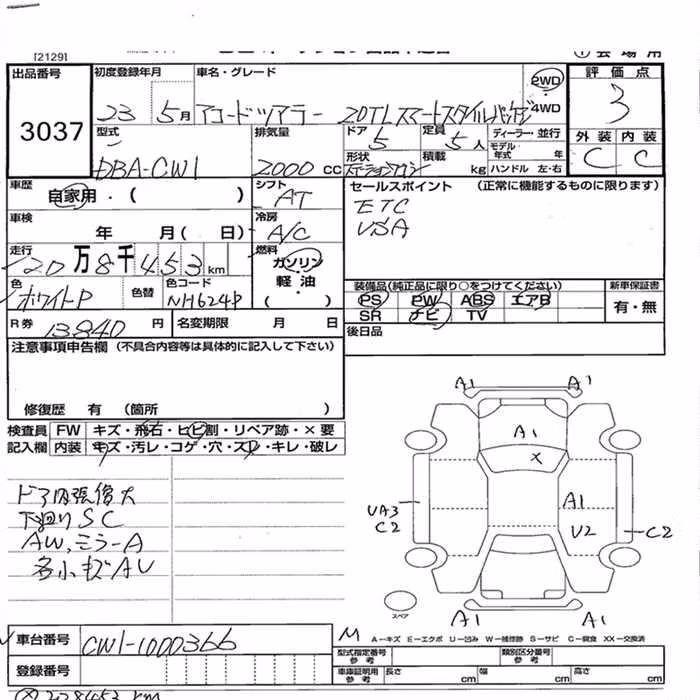 [2129]
出品番号
3037
初度登録年月 車名・グレード
23 5月 アコードツアラー 20TLスマートスタイルパッケージ
2WD
4WD
評価点
3
外装 内装
C C
型式 排気量 ドア 定員 ディーラー・並行
DBA-CW1 2000cc 5 5人
モデル年式 年
形状 積載 kg ハンドル 左・右
ステーションワゴン
車歴 自家用・( ) シフト AT
車検 年 月( 日) 冷房 A/C
走行 20万8千453km
燃料 ガソリン
軽油
( )
色 ホワイトP 色替 色コード NH624P
R券 13840円 名変期限 月 日
セールスポイント (正常に機能するものに限ります)
ETC
VSA
装備品(純正品に限り○をつけてください) 新車保証書
PS PW ABS エアB 有・無
SR ナビ TV
後日品
注意事項申告欄 (不具合内容等は具体的に記入して下さい)
修復歴 有 (箇所 )
検査員 FW キズ・飛石・ヒビ割・リペア跡・×要
記入欄 内装 キズ・汚レ・コゲ・穴・スレ・キレ・破レ
ドア内張傷大
下廻りSC
AW,ミラーA
各小キズAU
A1 A1
A1
X
A1
UA3
C2
U2
C2
スペア
A1 A1
A−キズ E−エクボ U−凹み W−補修跡 S−サビ C−腐食 XX−交換済
車台番号 CW1-1000366
登録番号
型式指定番号 参考 類別区分番号 参考
車庫証明用 参考 長さ cm 幅 cm 高さ cm
208453 km